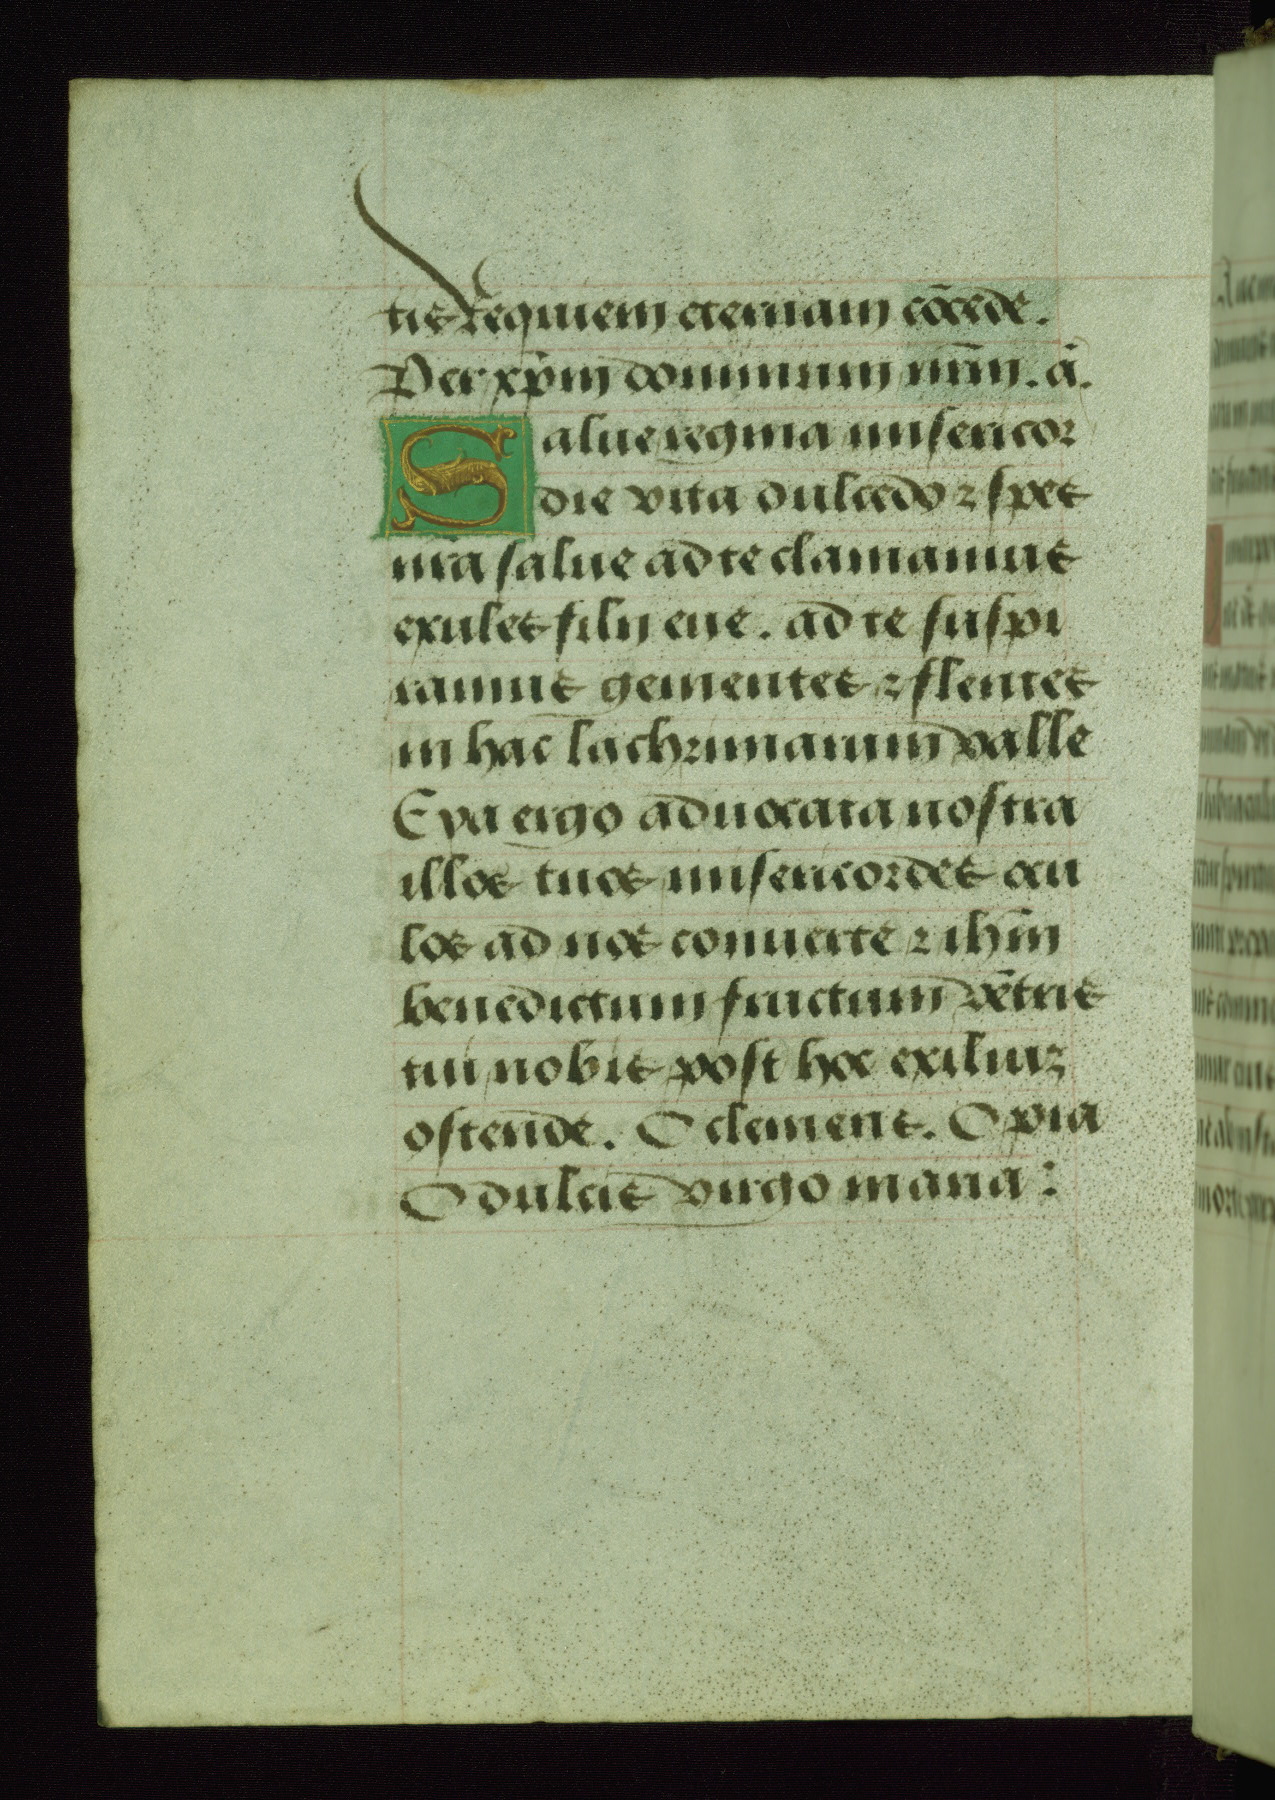 tis Requiem eternam cōcede.
Per xp̄m dominum nr̄m. ā.
Salue regina misericor
die vita dulcedo ⁊ spes
nr̄a salue ad te clamamus
exules filij eue. ad te suspi
ramus gementes ⁊ flentes
in hac lachrimarum valle
Eya ergo aduocata nostra
illos tuos misericordes ocu
los ad nos conuerte ⁊ ihm̄
benedictum fructum vētris
tui nobis post hoc exiliuʒ
ostende. O clemens. O pia
O dulcis virgo maria :